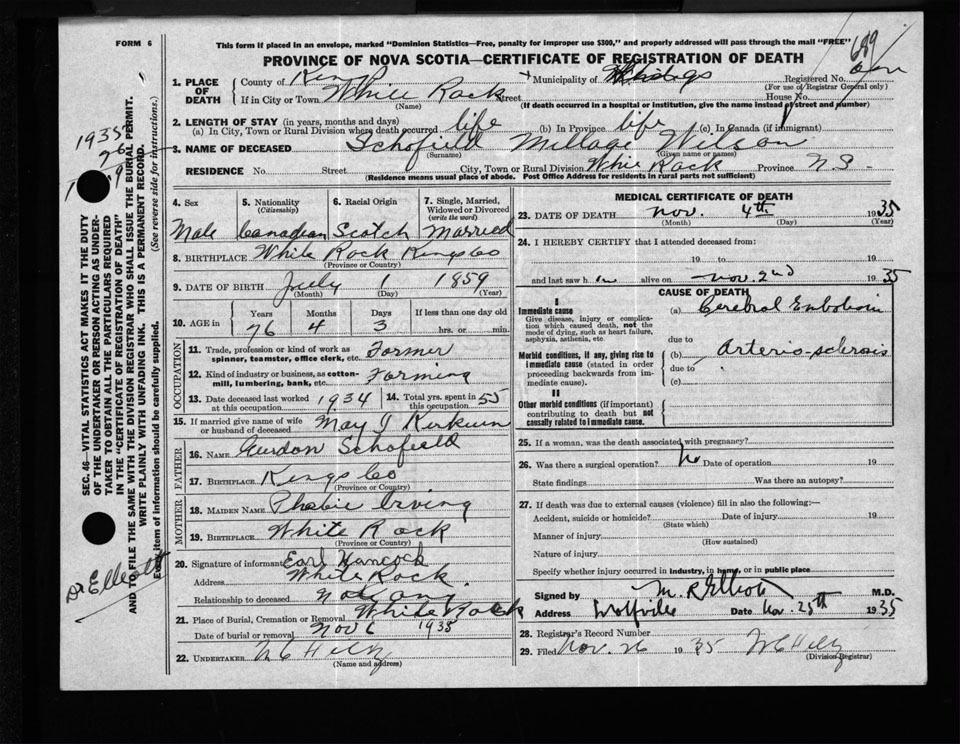 FORM 6
This form if placed in an envelope, marked "Dominion Statistics—Free, penalty for improper use $300," and properly addressed will pass through the mail "FREE"
PROVINCE OF NOVA SCOTIA—CERTIFICATE OF REGISTRATION OF DEATH
689
1. PLACE OF DEATH
County of Kings
Municipality of Kings
Registered No.
(For use of Registrar General only)
If in City or Town White Rock Street House No.
(Name) (If death occurred in a hospital or institution, give the name instead of street and number)
2. LENGTH OF STAY (in years, months and days)
(a) In City, Town or Rural Division where death occurred life (b) In Province life (c) In Canada (if immigrant)
3. NAME OF DECEASED Schofield Millage Wilson
(Surname) (Given name or names)
RESIDENCE No. Street City, Town or Rural Division Whie Rock Province N.S.
(Residence means usual place of abode. Post Office Address for residents in rural parts not sufficient)
4. Sex Male
5. Nationality (Citizenship) Canadian
6. Racial Origin Scotch
7. Single, Married, Widowed or Divorced (write the word) Married
8. BIRTHPLACE White Rock Kings Co
(Province or Country)
9. DATE OF BIRTH July 1 1859
(Month) (Day) (Year)
10. AGE in Years Months Days If less than one day old
76 4 3 hrs. or min.
OCCUPATION
11. Trade, profession or kind of work as spinner, teamster, office clerk, etc. Farmer
12. Kind of industry or business, as cotton-mill, lumbering, bank, etc. Farming
13. Date deceased last worked at this occupation 1934 14. Total yrs. spent in this occupation 55
15. If married give name of wife or husband of deceased May J
FATHER
16. NAME Gurdon Schofield
17. BIRTHPLACE Kings Co
(Province or Country)
MOTHER
18. MAIDEN NAME Phebie Irving
19. BIRTHPLACE White Rock
(Province or Country)
20. Signature of informant Earl Hancock
Address White Rock
Relationship to deceased Not any
21. Place of Burial, Cremation or Removal White Rock
Date of burial or removal Nov 6 1935
22. UNDERTAKER
(Name and address)
MEDICAL CERTIFICATE OF DEATH
23. DATE OF DEATH Nov. 4th 1935
(Month) (Day) (Year)
24. I HEREBY CERTIFY that I attended deceased from:
19 to 19
and last saw h im alive on Nov. 2nd 1935
CAUSE OF DEATH
I
Immediate cause
Give disease, injury or complication which caused death, not the mode of dying, such as heart failure, asphyxia, asthenia, etc.
(a) Cerebral Embolism
due to
Morbid conditions, if any, giving rise to immediate cause (stated in order proceeding backwards from immediate cause).
(b) Arterio-sclerosis
due to
(c)
II
Other morbid conditions (if important) contributing to death but not causally related to immediate cause.
25. If a woman, was the death associated with pregnancy?
26. Was there a surgical operation? No Date of operation 19
State findings Was there an autopsy?
27. If death was due to external causes (violence) fill in also the following:—
Accident, suicide or homicide? Date of injury 19
(State which)
Manner of injury
(How sustained)
Nature of injury
Specify whether injury occurred in industry, in home, or in public place
Signed by M. R. Elliott M.D.
Address Wolfville Date Nov. 25th 1935
28. Registrar's Record Number
29. Filed Nov. 26 1935
(Division Registrar)
1935
Dr Elliott
SEC. 46—VITAL STATISTICS ACT MAKES IT THE DUTY
OF THE UNDERTAKER OR PERSON ACTING AS UNDER-
TAKER TO OBTAIN ALL THE PARTICULARS REQUIRED
IN THE "CERTIFICATE OF REGISTRATION OF DEATH"
AND TO FILE THE SAME WITH THE DIVISION REGISTRAR WHO SHALL ISSUE THE BURIAL PERMIT.
WRITE PLAINLY WITH UNFADING INK. THIS IS A PERMANENT RECORD.
Every item of information should be carefully supplied. (See reverse side for instructions.)